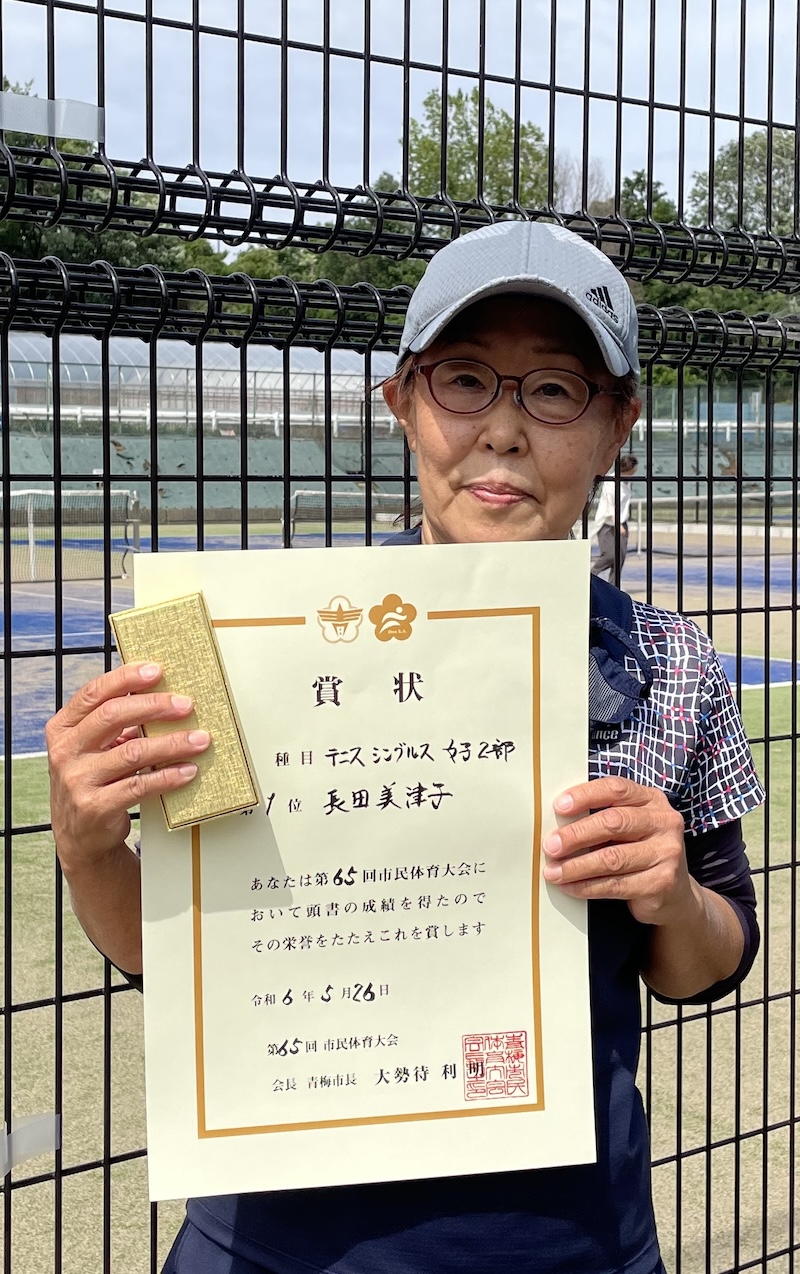 adidas
賞 状
種目 テニス シングルス 女子2部
第1位 長田美津子
あなたは第65回市民体育大会に
おいて頭書の成績を得たので
その栄誉をたたえこれを賞します
令和6年5月26日
第65回 市民体育大会
会長 青梅市長 大勢待 利明